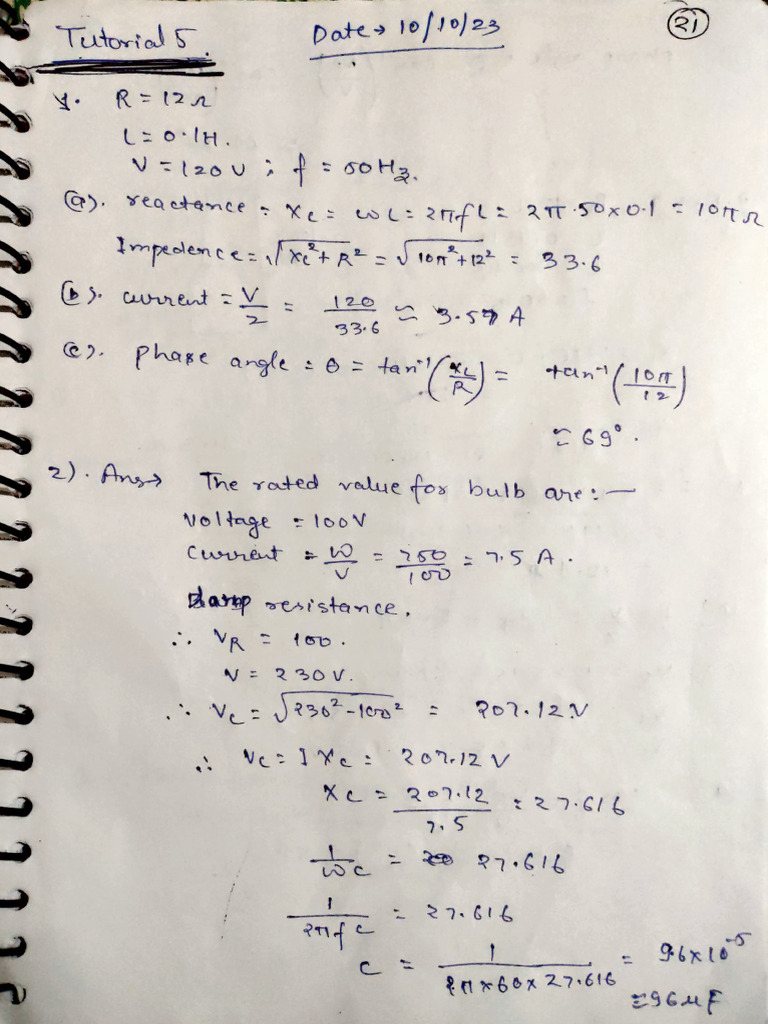 Tutorial 5 Date → 10/10/23 (21)
1. R = 12 Ω
L = 0.1H.
V = 120 V ; f = 50Hz.
(a). reactance = XL = ωL = 2πfL = 2π.50x0.1 = 10π Ω
Impedence = √XL²+R² = √10π²+12² = 33.6
(b). current = V/Z = 120/33.6 ≃ 3.57 A
(c). phase angle = θ = tan⁻¹(XL/R) = tan⁻¹(10π/12)
≃ 69°.
2). Ans→ The rated value for bulb are:—
voltage = 100V
Current = W/V = 750/100 = 7.5 A.
resistance.
∴ VR = 100.
V = 230V.
∴ Vc = √230²-100² = 207.12V
∴ Vc = I Xc = 207.12 V
Xc = 207.12/7.5 = 27.616
1/ωc = 27.616
1/2πfc = 27.616
c = 1/2π x 60 x 27.616 = 9.6x10⁻⁵
= 96 μF